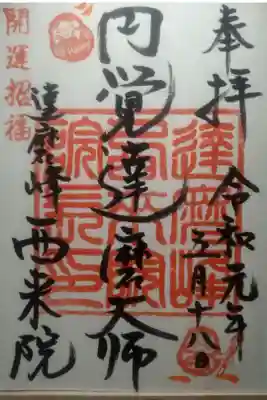 奉拝
令和元年
六月十八日
円覚達磨大師
達磨峰西来院
開運招福